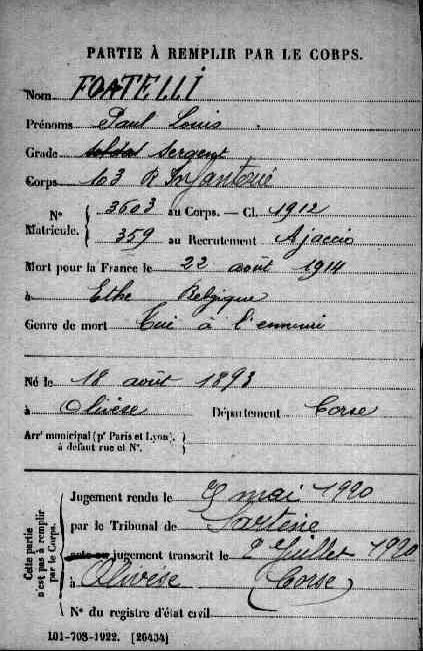 PARTIE À REMPLIR PAR LE CORPS.
Nom FOATELLI
Prénoms Paul Louis.
Grade soldat Sergent
Corps 103 R Infanterie
N° Matricule. 3603 au Corps. — Cl. 1912
359 au Recrutement Ajaccio
Mort pour la France le 22 août 1914
à Ethe Belgique
Genre de mort Tué à l'ennemi
Né le 18 août 1893
à Olivese Département Corse
Arrt municipal (pr Paris et Lyon),
à défaut rue et N°.
Cette partie n'est pas à remplir par le Corps.
Jugement rendu le mai 1920
par le Tribunal de Sartène
acte ou jugement transcrit le 2 Juillet 1920
à Olivése (Corse)
N° du registre d'état civil
101-708-1922. [26434]